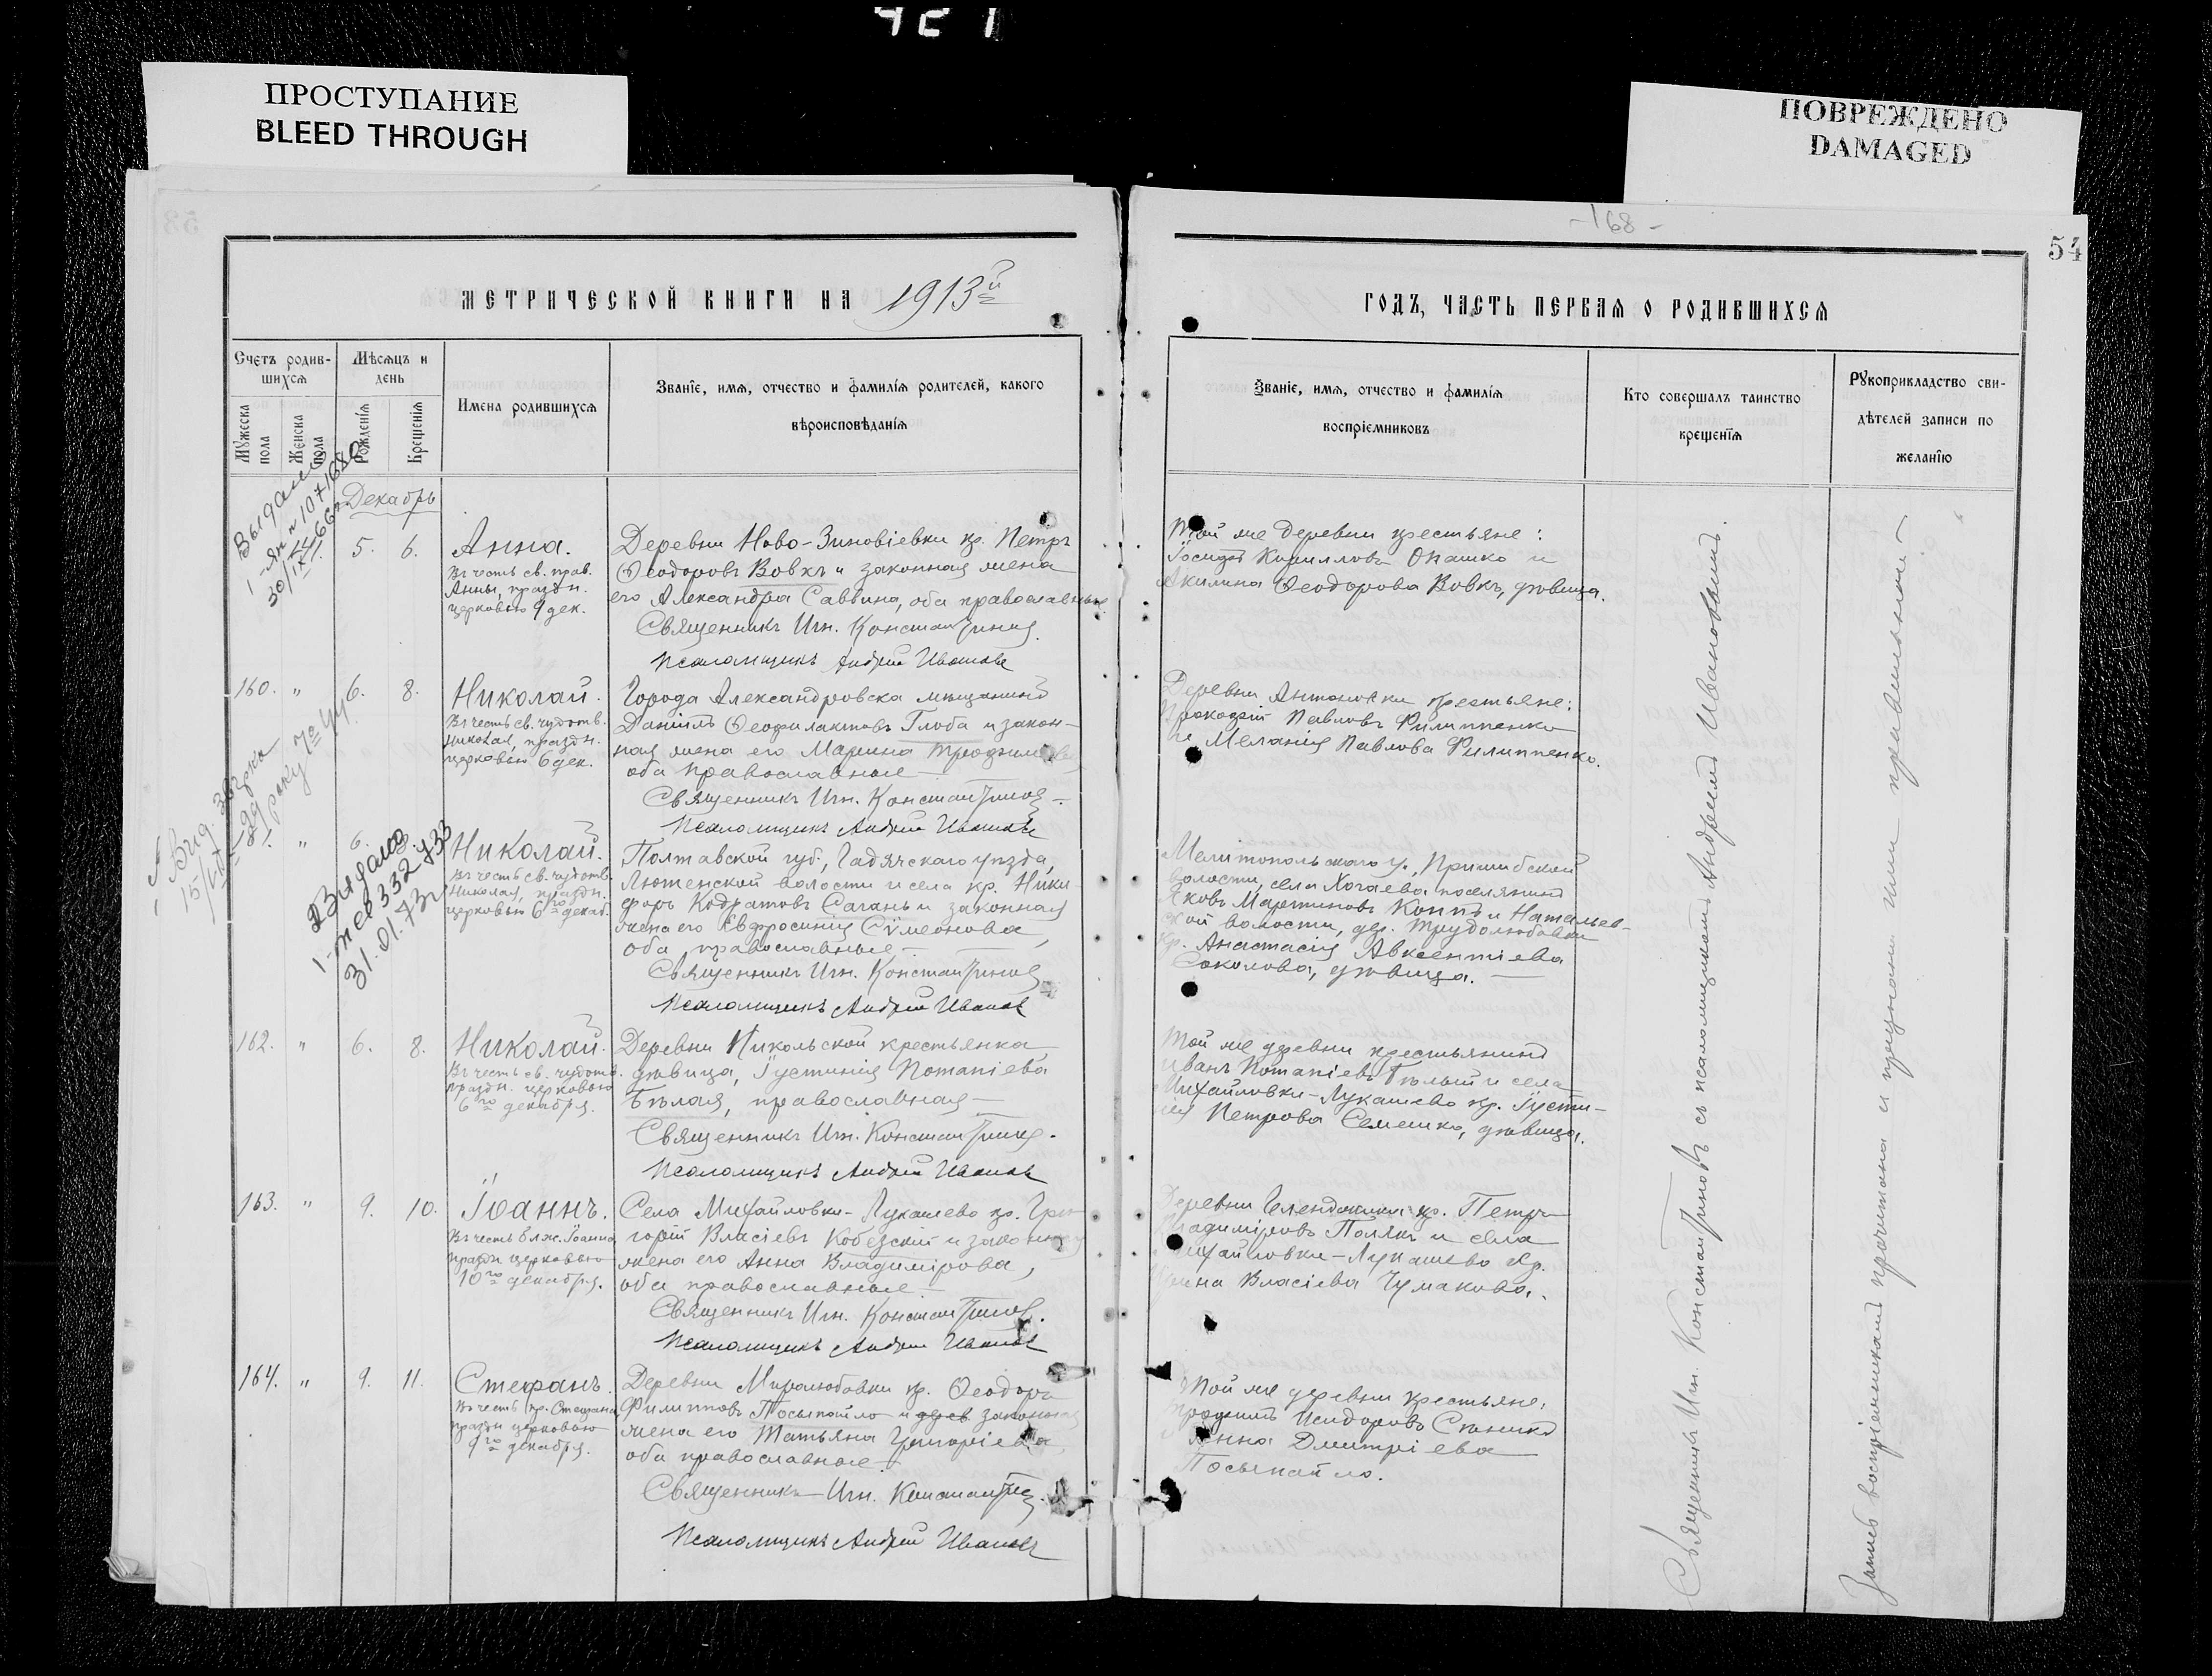 ПРОСТУПАНИЕ
BLEED THROUGH
ПОВРЕЖДЕНО
DAMAGED
-168-
54
МЕТРИЧЕСКОЙ КНИГИ НА 1913й
ГОДЪ, ЧАСТЬ ПЕРВАЯ О РОДИВШИХСЯ
Счетъ родив-
шихся
Мужеска
пола
Женска
пола
Мѣсяцъ и
день
Рожденія
Крещенія
Имена родившихся
Званіе, имя, отчество и фамилія родителей, какого
вѣроисповѣданія
Званіе, имя, отчество и фамилія
воспріемниковъ
Кто совершалъ таинство
крещенія
Рукоприкладство сви-
дѣтелей записи по
желанію
Декабрь
5. 6.
Анна.
Въ честь св. прав.
Анны, праздн.
церковью 9 дек.
Деревни Ново-Зиновіевки кр. Петръ
Ѳеодоровъ Вовкъ и законная жена
его Александра Саввина, оба православные
Священникъ Игн. Константиновъ
Псаломщикъ Андрей Ивановъ
Той же деревни крестьяне:
Кирилловъ Опашко и
Акилина Ѳеодорова Вовкъ, дѣвица.
160. " 6. 8.
Николай.
Въ честь св. чудотв.
Николая, праздн.
церковью 6 дек.
Города Александровска мѣщанинъ
Даніилъ Ѳеофилактовъ Глоба и закон-
ная жена его Марина
оба православные
Священникъ Игн. Константиновъ
Псаломщикъ Андрей Ивановъ
Деревни Антоновки крестьяне:
Прокофій Павловъ Филиппенко
и Меланія Павлова Филиппенко.
" 6.
Николай.
Въ честь св. чудотв.
Николая, праздн.
церковью 6го декаб.
Полтавской губ., Гадячскаго уѣзда,
Лютенской волости и села кр. Ники-
форъ Кодратовъ Сагань и законная
жена его Евфросинія Сѵмеонова
оба православные
Священникъ Игн. Константиновъ
Псаломщикъ Андрей Ивановъ
Мелитопольскаго у., Пришибской
волости, села поселянинъ
Яковъ Мартиновъ и Натальев-
ской волости, дер. Трудолюбовки
кр. Анастасія Авксентіева
Соколова, дѣвица.
162. " 6. 8.
Николай.
Въ честь св. чудотв.
праздн. церковью
6го декабря.
Деревни Никольской крестьянка
дѣвица, Іустинія Потапіева
Бѣлая, православная
Священникъ Игн. Константиновъ.
Псаломщикъ Андрей Ивановъ
Той же деревни крестьянинъ
Иванъ Потапіевъ Бѣлый и села
Михайловки-Лукашево кр. Іусти-
нія Петрова Семешко, дѣвица.
163. " 9. 10.
Іоаннъ.
Въ честь блж. Іоанна
праздн церковью
10го декабря.
Села Михайловки-Лукашево кр. Гри-
горій Власіевъ Кобезскій и законная
жена его Анна Владимірова,
оба православные
Священникъ Игн. Константиновъ.
Псаломщикъ Андрей Ивановъ
Деревни кр. Петръ
Владиміровъ Полякъ и села
Михайловки-Лукашево кр.
Власіева Чумакова.
164. " 9. 11.
Стефанъ.
Въ честь пр. Стефана
праздн церковью
9го декабря.
Деревни Миролюбовки кр. Ѳеодоръ
Филипповъ Посыпайло и законная
жена его Татьяна Григоріева,
оба православные.
Священникъ Игн. Константиновъ.
Псаломщикъ Андрей Ивановъ
Той же деревни крестьяне:
Исидоровъ
Анна Дмитріева
Посыпайло.
Священникъ Игн. Константиновъ съ псаломщикомъ Андреемъ Ивановымъ.
Запись воспріемникамъ прочитана и признана ими правильною